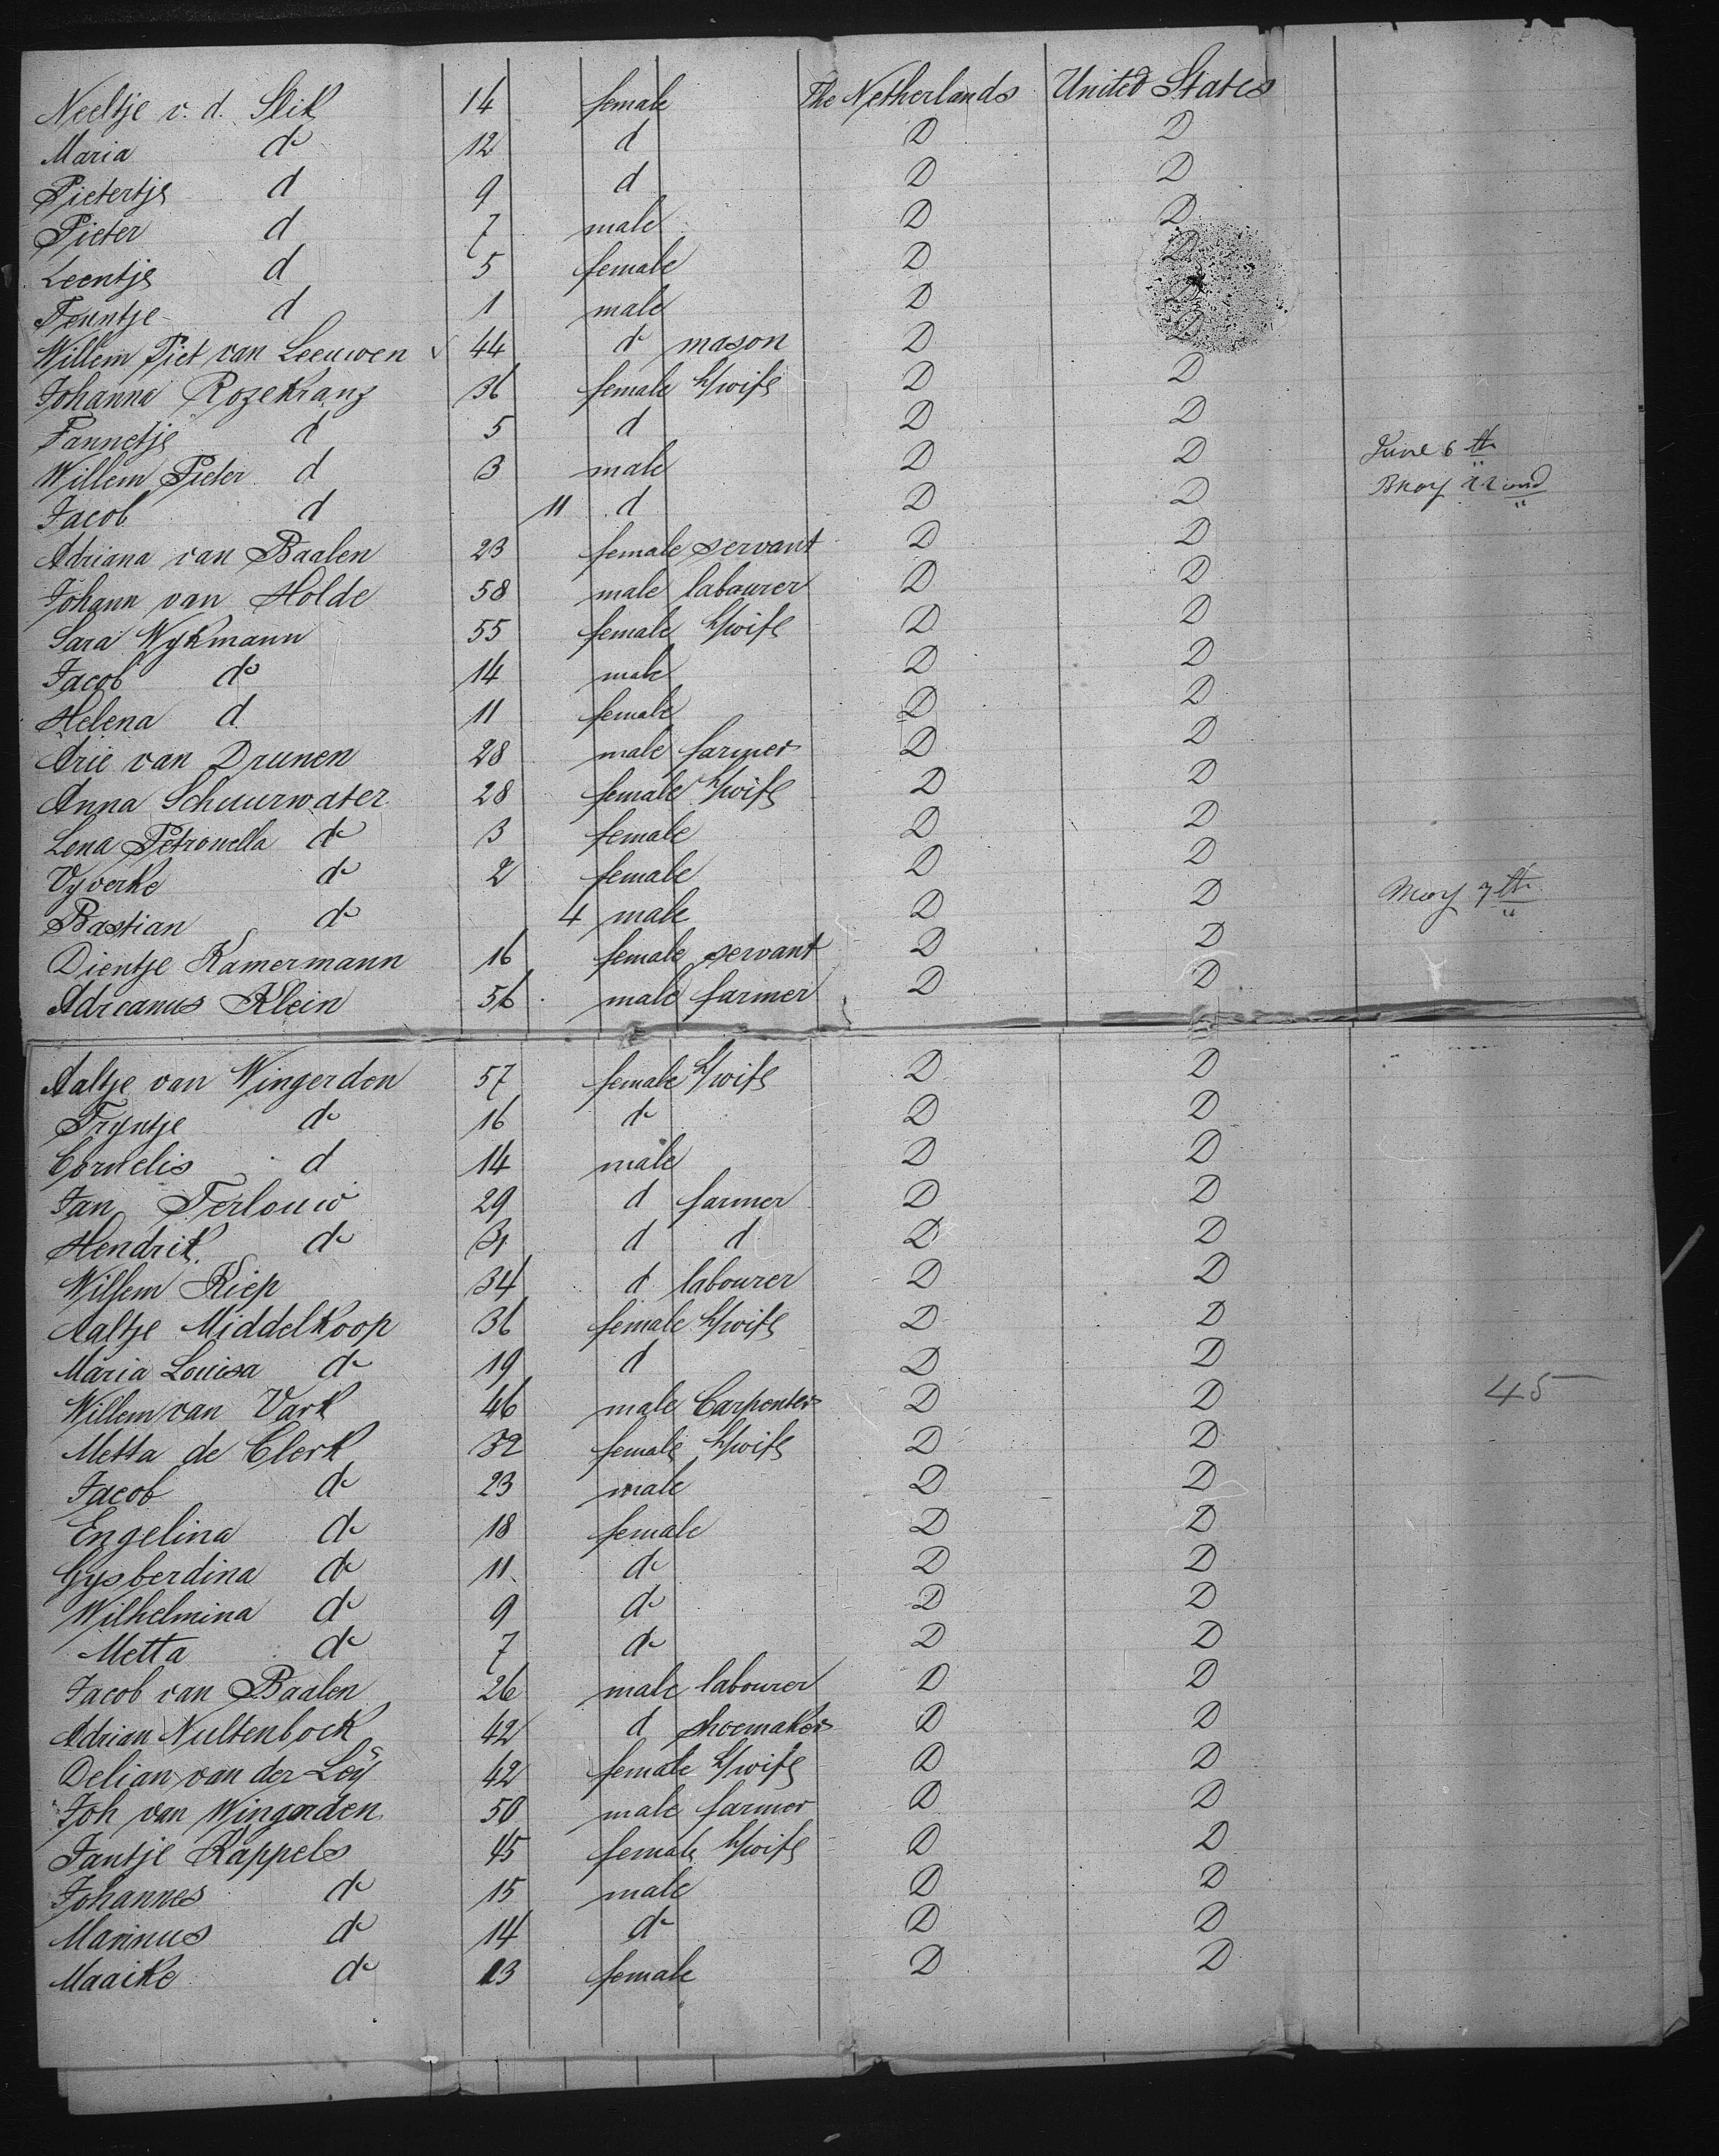 Neeltje v. d. Slik 14 female The Netherlands United States
Maria do 12 d D D
Pietertje d 9 d D D
Pieter d 7 male D D
Leentje d 5 female D D
Teuntje d 1 male D D
Willem Piet van Leeuwen 44 do mason D D
Johanna Rozekranz 36 female h/wife D D
Jannetje d 5 d D D
Willem Pieter d 3 male D D June 6th
Jacob d 11 d D D May 22ond
Adriana van Baalen 23 female servant D D
Johann van Holde 58 male labourer D D
Sara Wykmann 55 female h/wife D D
Jacob do 14 male D D
Helena d 11 female D D
Arie van Drunen 28 male farmer D D
Anna Schuurwater 28 female h/wife D D
Lena Petronella do 3 female D D
Vyverke do 2 female D D
Bastian do 4 male D D May 7th
Dientje Kamermann 16 female servant D D
Adreanus Klein 56 male farmer D D
Aaltje van Wingerden 57 female h/wife D D
Tryntje do 16 do D D
Cornelis d 14 male D D
Jan Terlouw 29 d farmer D D
Hendrik do 31 d d D D
Willem Kiep 34 d labourer D D
Aaltje Middelkoop 36 female h/wife D D
Maria Louisa do 19 d D D
Willem van Vark 46 male Carpenter D D 45
Metta de Clerk 32 female h/wife D D
Jacob do 23 male D D
Engelina do 18 female D D
Gysberdina do 11 do D D
Wilhelmina do 9 do D D
Metta do 7 do D D
Jacob van Baalen 26 male labourer D D
Adrian Nultenbock 42 d shoemaker D D
Delian van der Loy 42 female h/wife D D
Joh van Wingerden 50 male farmer D D
Jantje Kappels 45 female h/wife D D
Johannes do 15 male D D
Marinus do 14 do D D
Maaike do 13 female D D